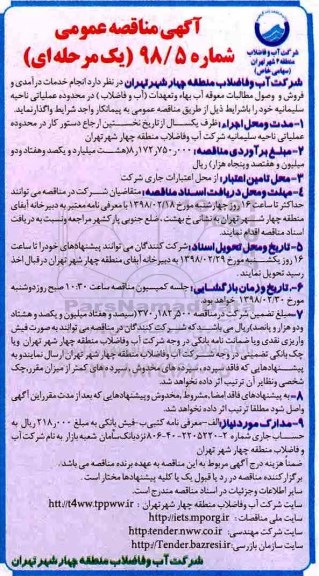 آگهی مناقصه عمومی
شماره ۹۸/۵ (یک مرحله ای)
شرکت آب و فاضلاب
منطقه ۴ شهر تهران
(سهامی خاص)
شرکت آب وفاضلاب منطقه چهار شهر تهران در نظر دارد انجام خدمات درآمدی و
فروش و وصول مطالبات معوقه آب بهاء وتعهدات (آب و فاضلاب) در محدوده عملیاتی ناحیه
سلیمانیه خود را باشرایط ذیل از طریق مناقصه عمومی به پیمانکار واجد شرایط واگذار نماید.
۱-مدت ومحل اجراء: ظرف یکسال از تاریخ نخستین ارجاع دستور کار در محدوده
عملیاتی ناحیه سلیمانیه شرکت آب وفاضلاب منطقه چهار شهر تهران
۲-مبلغ برآوردی مناقصه: ۸٫۱۷۲٫۷۵۰٫۰۰۰(هشت میلیارد و یکصد وهفتاد ودو
میلیون و هفتصد وپنجاه هزار) ریال
۳-محل تامین اعتبار: از محل اعتبارات جاری شرکت
۴-مهلت ومحل دریافت اسناد مناقصه: متقاضیان شرکت در مناقصه می توانند
حداکثر تا ساعت ۱۶ روز چهارشنبه مورخ ۱۳۹۸/۰۲/۱۸ با معرفی نامه معتبر به دبیرخانه آبفای
منطقه چهار شهر تهران به نشانی خ بهشت ، ضلع جنوبی پارکشهر مراجعه ونسبت به دریافت
اسناد مناقصه اقدام نمایند.
۵-تاریخ ومحل تحویل اسناد: شرکت کنندگان می توانند پیشنهادهای خود را تا ساعت
۱۶ روز یکشنبه مورخ ۱۳۹۸/۰۲/۲۹ به دبیرخانه آبفای منطقه چهار شهر تهران در قبال اخذ
رسید تحویل نمایند.
۶-تاریخ وزمان بازگشایی: جلسه کمیسیون مناقصه ساعت ۱۰:۳۰ صبح روز دوشنبه
مورخ ۱۳۹۸/۰۲/۳۰ خواهد بود
۷-مبلغ تضمین شرکت در مناقصه ۳۷۰٫۱۸۲٫۵۰۰ (سیصد و هفتاد میلیون و یکصد و هشتاد
ودو هزار و پانصد)ریال می باشد که شرکت کنندگان در مناقصه می توانند به صورت فیش
واریزی نقدی ویا ضمانت نامه بانکی در وجه شرکت آب وفاضلاب منطقه چهار شهر تهران ویا
چک بانکی تضمینی در وجه شرکت آب وفاضلاب منطقه چهار شهر تهران ارسال نمایند و به
پیشنهادهایی که فاقد سپرده، سپرده های مخدوش ، سپرده های کمتر از میزان مقرر، چک
شخصی ونظایر آن ترتیب اثر داده نخواهد شد.
۸-به پیشنهادهای فاقد امضا، مشروط ، مخدوش وپیشنهادهایی که بعد از مدت مقرر این آگهی
واصل شود مطلقا ترتیب اثر داده نخواهد شد.
۹-مدارک مورد نیاز: الف-معرفی نامه کتبی ب-فیش بانکی به مبلغ ۲۱۸٫۰۰۰ ریال به
ضمناً هزینه درج آگهی مربوط به این مناقصه به عهده برنده مناقصه می باشد.
برگزار کننده مناقصه در رد یا قبول یک یا کلیه پیشنهادها مختار است .
سایر اطلاعات وجزئیات در اسناد مناقصه مندرج است.
سایت شرکت آب وفاضلاب منطقه چهار شهر تهران : http://t4ww.tppww.ir
سایت ملی مناقصات : http://iets.mporg.ir
سایت شرکت مهندسی: http:tender.nww.co.ir
سایت سازمان بازرسی: http://Tender.bazresi.ir
شرکت آب وفاضلاب منطقه چهار شهر تهران